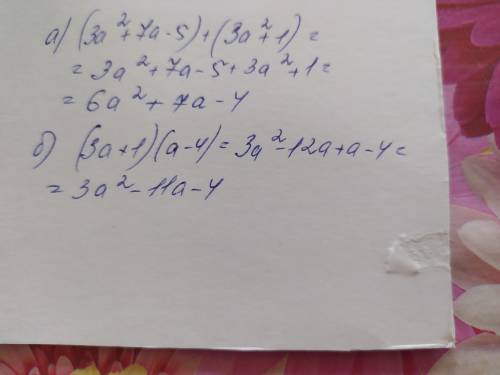 а) (3a²+7a-5)+(3a²+1)=
=3a²+7a-5+3a²+1=
=6a²+7a-4
б) (3a+1)(a-4)=3a²-12a+a-4=
=3a²-11a-4